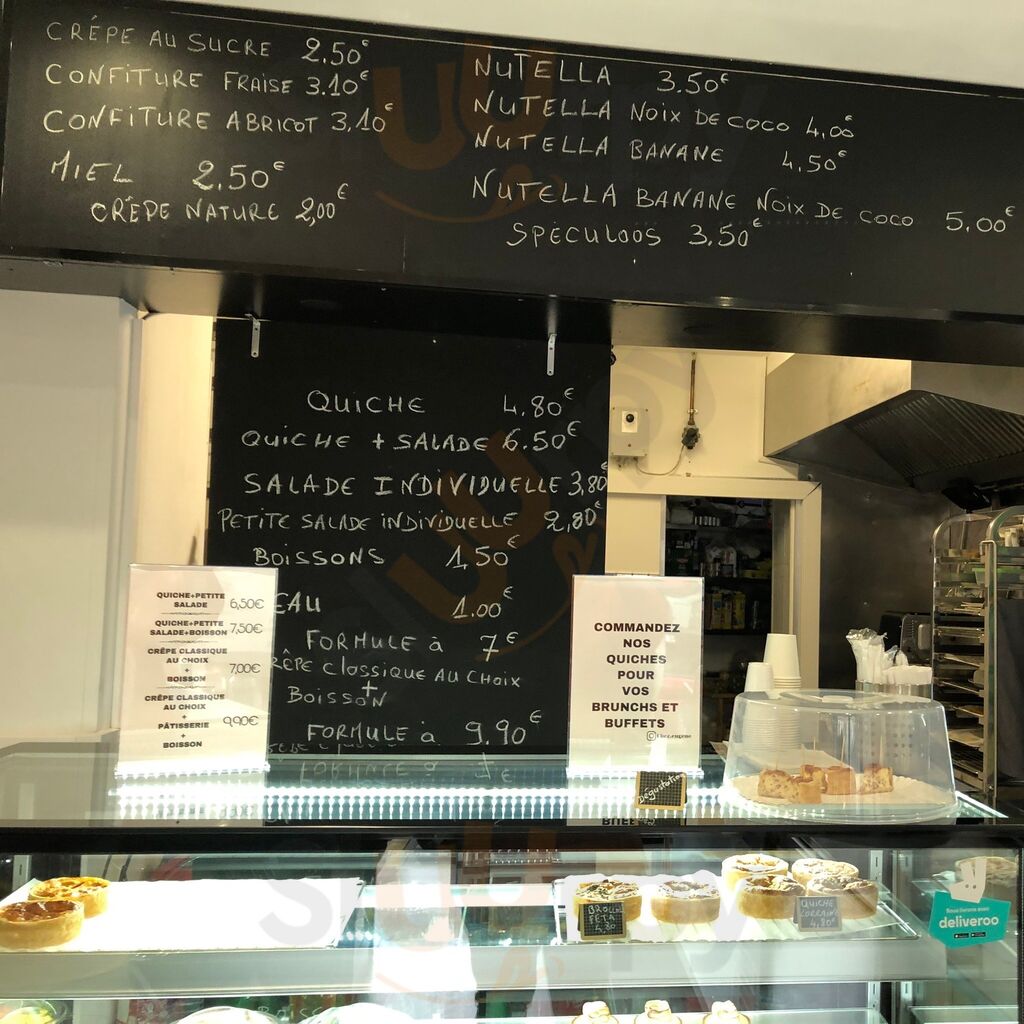 CRÊPE AU SUCRE 2.50€
CONFITURE FRAISE 3.10€
CONFITURE ABRICOT 3,10€
MIEL 2.50€
CRÊPE NATURE 2,00€
NUTELLA 3.50€
NUTELLA NOIX DE COCO 4,00€
NUTELLA BANANE 4,50€
NUTELLA BANANE NOIX DE COCO 5,00€
SPECULOOS 3.50€
QUICHE 4.80€
QUICHE + SALADE 6.50€
SALADE INDIVIDUELLE 3,80€
PETITE SALADE INDIVIDUELLE 2,80€
BOISSONS 1,50€
EAU 1.00€
FORMULE à 7€
CLASSIQUE AU CHOIX
+
BOISSON
FORMULE à 9.90€
QUICHE+PETITE
SALADE 6,50€
QUICHE+PETITE
SALADE+BOISSON 7,50€
CRÊPE CLASSIQUE
AU CHOIX
+
BOISSON 7,00€
CRÊPE CLASSIQUE
AU CHOIX
+
PÂTISSERIE
+
BOISSON 9,90€
COMMANDEZ
NOS
QUICHES
POUR
VOS
BRUNCHS ET
BUFFETS
Dégustation
FETA
4,80
QUICHE
LORRAINE
4,80€
deliveroo